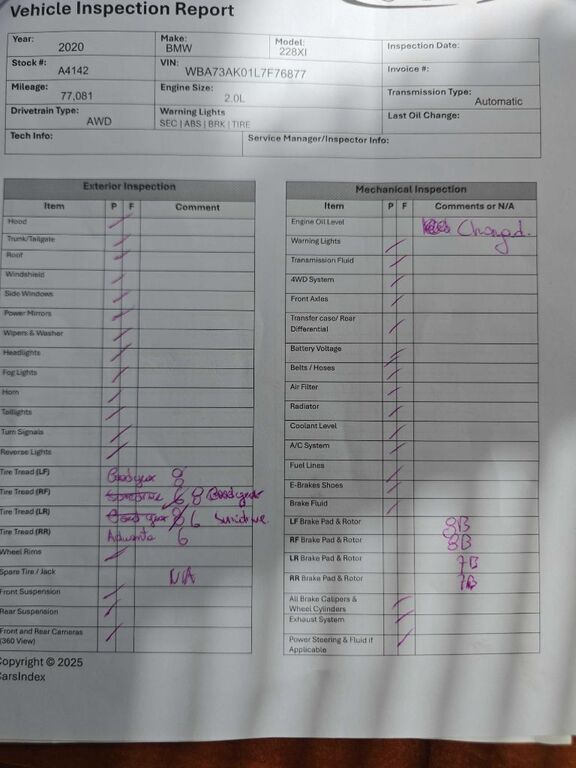 Vehicle Inspection Report
Year: 2020 Make: BMW Model: 228XI Inspection Date:
Stock #: A4142 VIN: WBA73AK01L7F76877 Invoice #:
Mileage: 77,081 Engine Size: 2.0L Transmission Type: Automatic
Drivetrain Type: AWD Warning Lights SEC | ABS | BRK | TIRE Last Oil Change:
Tech Info: Service Manager/Inspector Info:
Exterior Inspection
Item P F Comment
Hood
Trunk/Tailgate
Roof
Windshield
Side Windows
Power Mirrors
Wipers & Washer
Headlights
Fog Lights
Horn
Taillights
Turn Signals
Reverse Lights
Tire Tread (LF) Goodyear 8
Tire Tread (RF) 6 8 Goodyear
Tire Tread (LR) Good year 8 6
Tire Tread (RR) Advanta 6
Wheel Rims
Spare Tire / Jack N/A
Front Suspension
Rear Suspension
Front and Rear Cameras
(360 View)
Mechanical Inspection
Item P F Comments or N/A
Engine Oil Level Changed.
Warning Lights
Transmission Fluid
4WD System
Front Axles
Transfer case/ Rear
Differential
Battery Voltage
Belts / Hoses
Air Filter
Radiator
Coolant Level
A/C System
Fuel Lines
E-Brakes Shoes
Brake Fluid
LF Brake Pad & Rotor 8B
RF Brake Pad & Rotor 8B
LR Brake Pad & Rotor 7B
RR Brake Pad & Rotor 7B
All Brake Calipers &
Wheel Cylinders
Exhaust System
Power Steering & Fluid if
Applicable
Copyright © 2025
CarsIndex